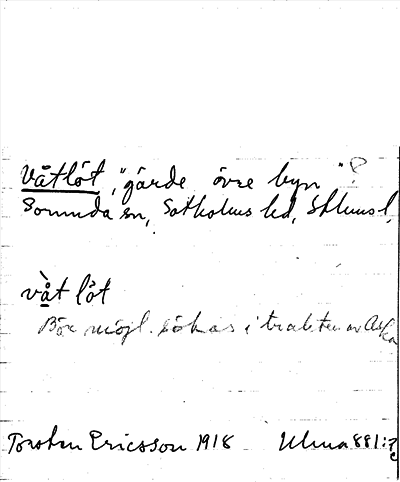 Våtlöt, "gärde övre byn" ?
Sorunda sn, Sotholms hd, Sthlms l,
vå̀t löt
Bör möjl. sökas i trakten av Aska
Torsten Ericsson 1918 Ulma 881:2